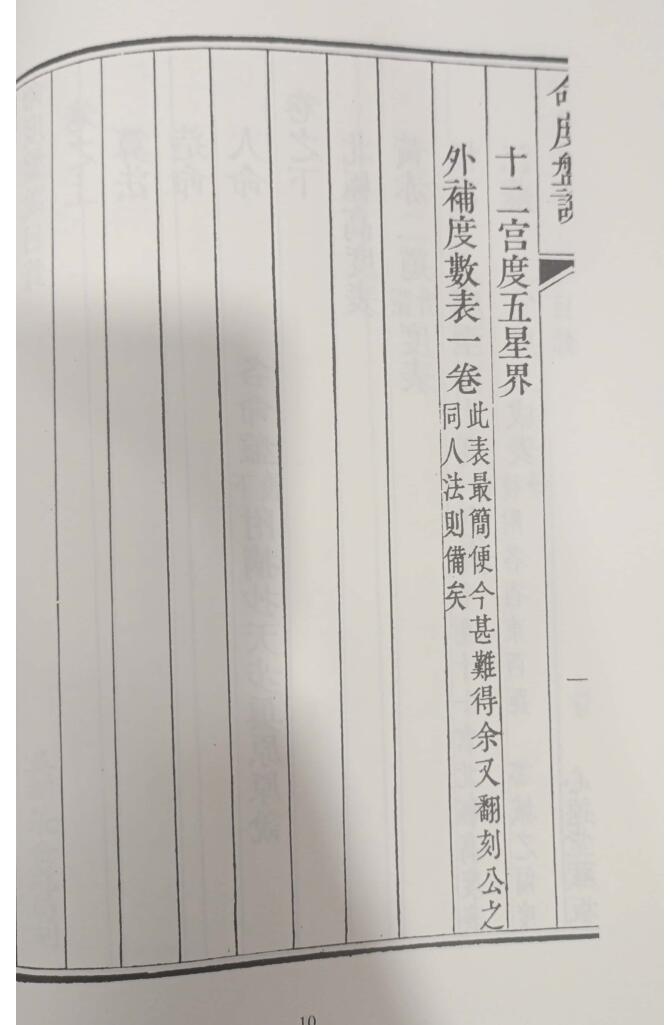 命度盤說
一
十二宮度五星界
外補度數表一卷
此表最簡便今甚難得余又翻刻公之
同人法則備矣
10